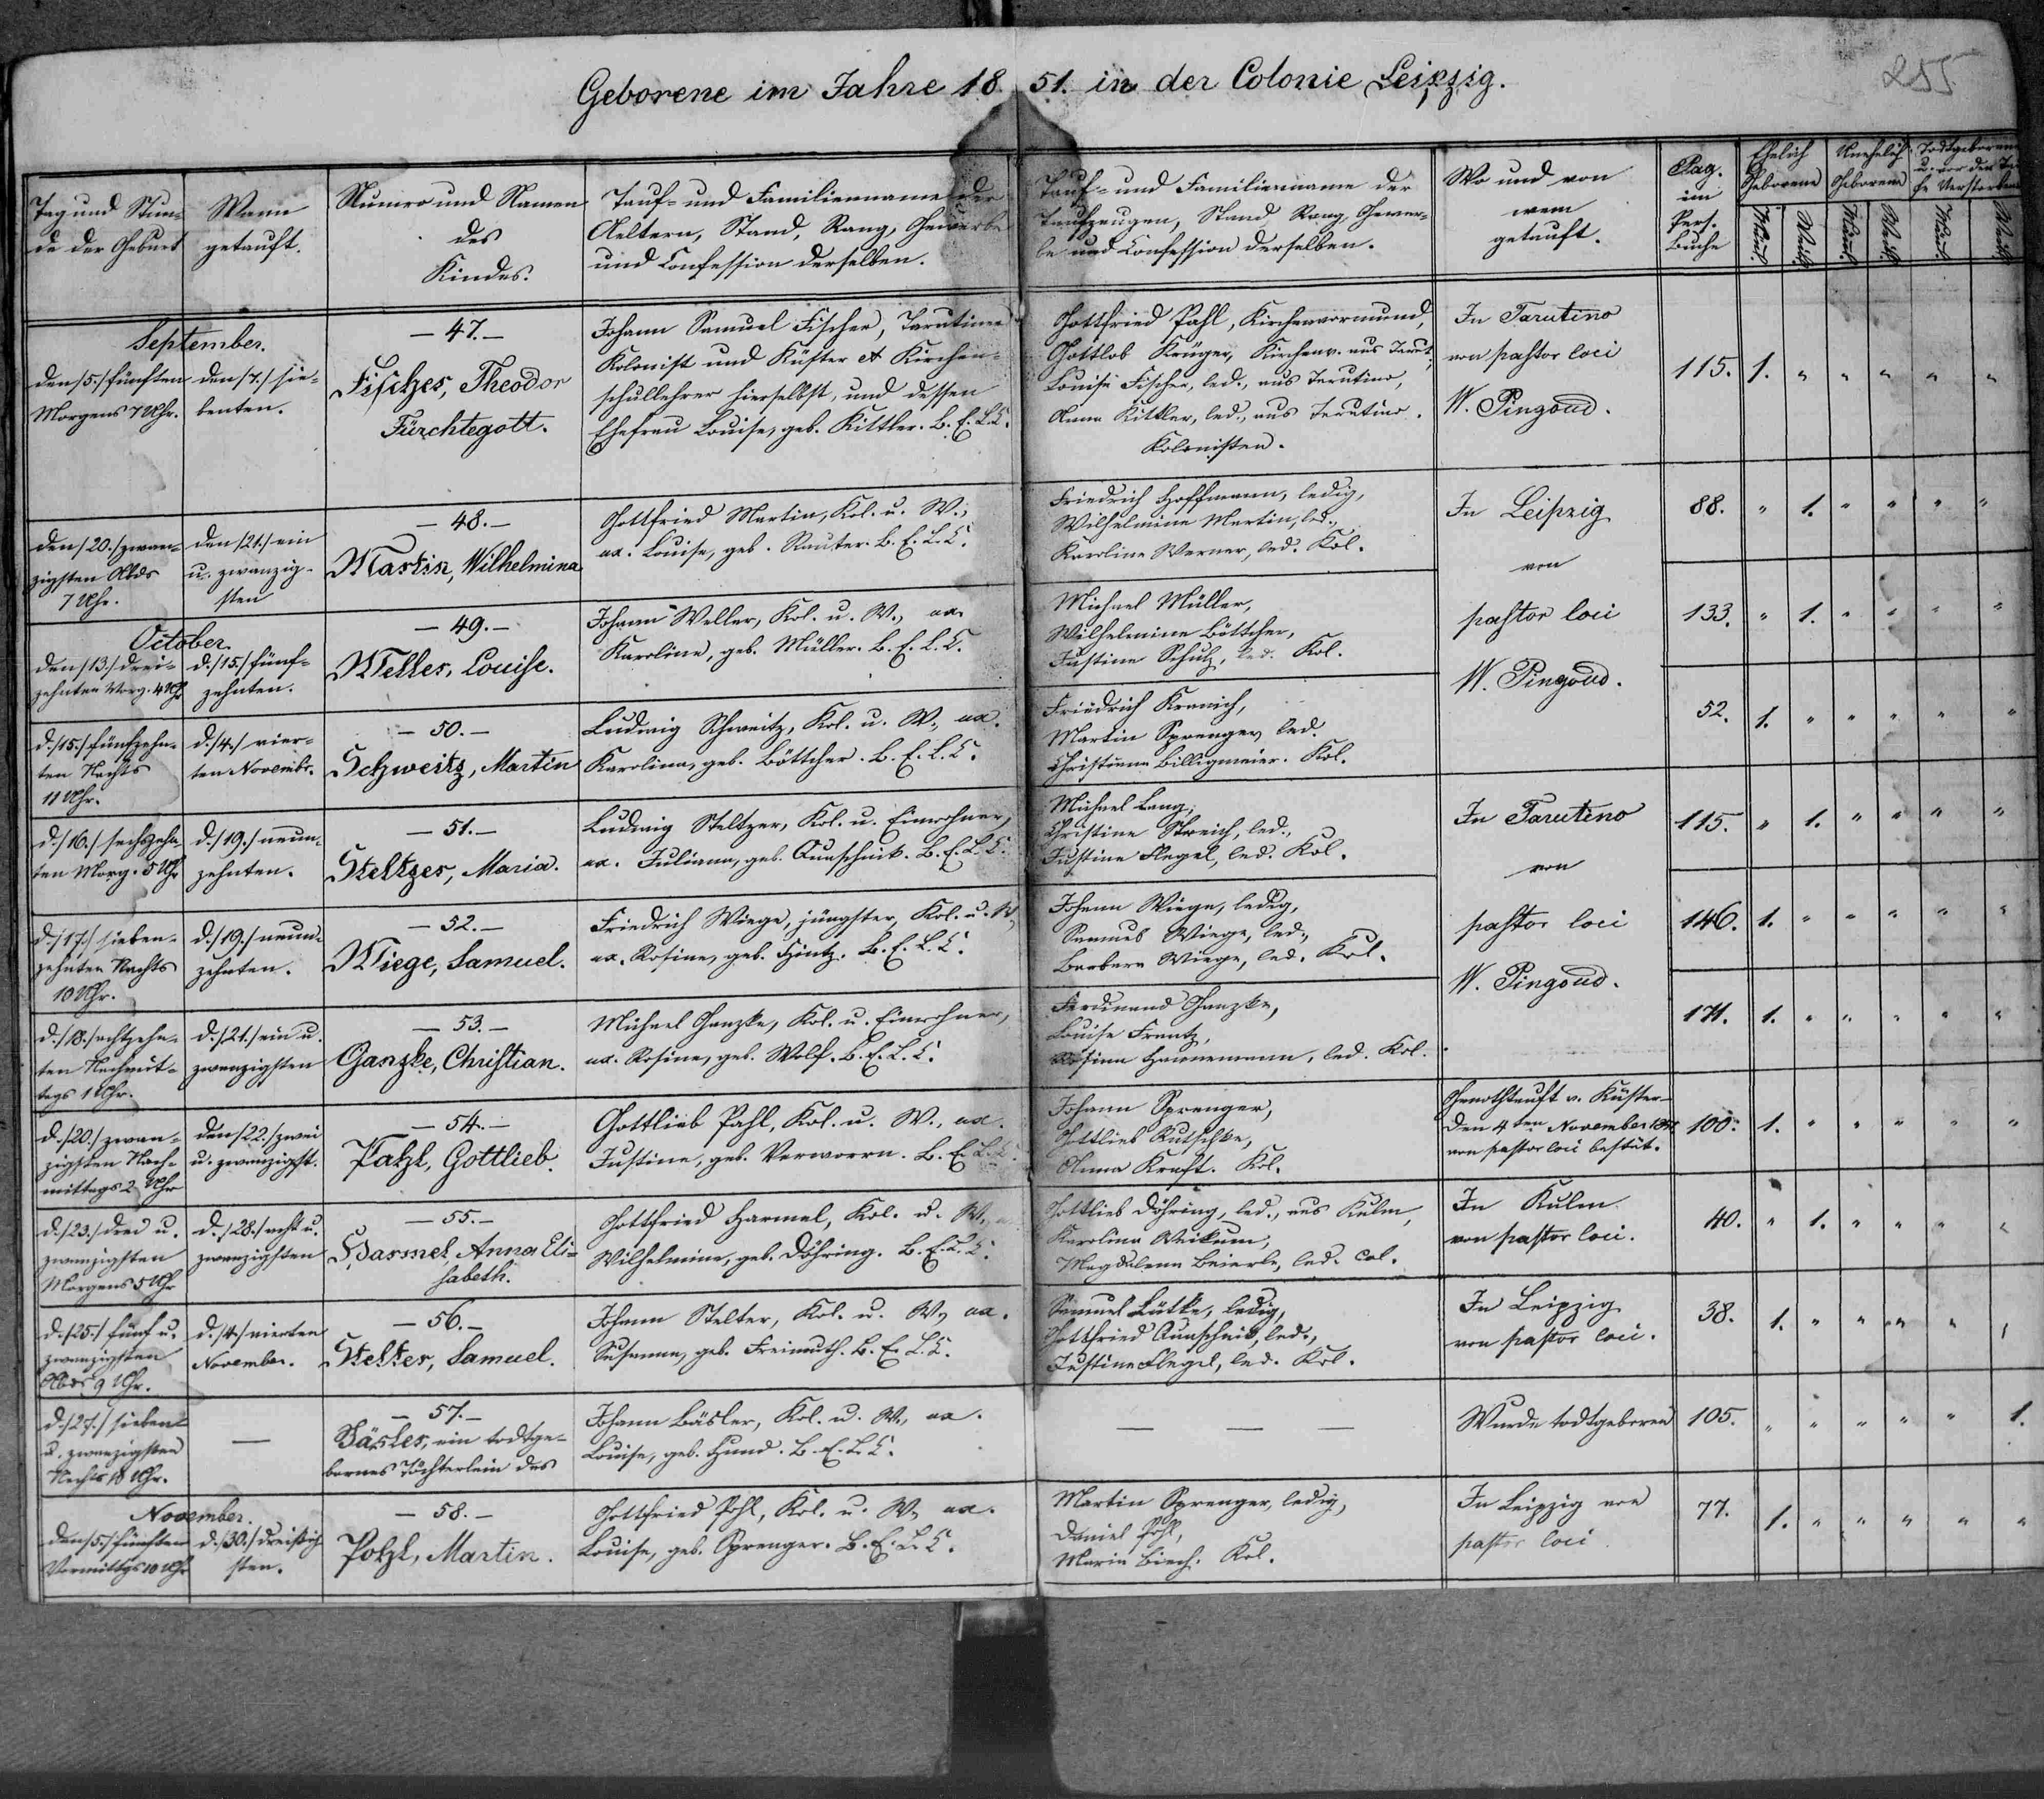 255
Geborene im Jahre 1851. in der Colonie Leipzig.
Tag und Stun-
de der Geburt
Wann
getauft.
Numro und Namen
des
Kindes.
Tauf- und Familienname der
Aeltern, Stand, Rang, Gewerbe
und Confession derselben.
Tauf- und Familienname der
Taufzeugen, Stand Rang, Gewer-
be und Confession derselben.
Wo und von
wem
getauft.
Pag.
im
Pers.
Buche
Ehelich
Geborene
Unehelich
Geborene
Todtgeborene
u. vor der Tau
fe Verstorbene
Männl.
Weibl.
Männl.
Weibl.
Männl.
Weibl.
September.
den /5./ fünften
Morgens 7 Uhr.
den /7./ sie-
benten.
- 47. -
Fischer, Theodor
Fürchtegott.
Johann Samuel Fischer, Tarutiner
Kolonist und Küster et Kirchen-
schullehrer hierselbst, und dessen
Ehefrau Louise, geb. Kittler. B. E. L. C.
Gottfried Pahl, Kirchenvormund,
Gottlob Krüger, Kirchenv. aus Tarut.,
Louise Fischer, led., aus Tarutino,
Anna Kittler, led., aus Tarutino.
Kolonisten.
In Tarutino
von pastor loci
W. Pingoud.
115. 1. " " " " "
den /20./ zwan-
zigsten Abds
7 Uhr.
den /21./ ein
u. zwanzig-
sten
- 48. -
Martin, Wilhelmina
Gottfried Martin, Kol. u. W.,
ux. Louise, geb. Rauter. B. E. L. C.
Friedrich Hoffmann, ledig,
Wilhelmine Martin, led.,
Karoline Werner, led. Kol.
In Leipzig
von
pastor loci
W. Pingoud.
88. " 1. " " " "
October.
den /13./ drei-
zehnten Morg. 4 Uhr
d. /15./ fünf-
zehnten.
- 49. -
Weller, Louise.
Johann Weller, Kol. u. W., ux.
Karoline, geb. Müller. B. E. L. C.
Michael Müller,
Wilhelmine Böttcher,
Justine Schulz, led. Kol.
133. " 1. " " " "
d. /15./ fünfzehn-
ten Nachts
11 Uhr.
d. /4./ vier-
ten Novembr.
- 50. -
Schweitz, Martin
Ludwig Schweitz, Kol. u. W., ux.
Karolina, geb. Böttcher. B. E. L. C.
Friedrich Kranich,
Martin Sprenger, led.
Christiana Billigmeier. Kol.
52. 1. " " " " "
d. /16./ sechszehn-
ten Morg. 5 Uhr
d. /19./ neun-
zehnten.
- 51. -
Steltzer, Maria.
Ludwig Steltzer, Kol. u. Einwohner,
ux. Juliana, geb. Quaschnick. B. E. L. C.
Michael Lang,
Christine Streich, led.,
Justine Flegel, led. Kol.
In Tarutino
von
pastor loci
W. Pingoud.
115. " 1. " " " "
d. /17./ sieben-
zehnten Nachts
10 Uhr.
d. /19./ neun-
zehnten.
- 52. -
Wiege, Samuel.
Friedrich Wiege, jüngster, Kol. u. W.,
ux. Rosine, geb. Hintz. B. E. L. C.
Johann Wiege, ledig,
Samuel Wiege, led.,
Barbara Wiege, led. Kol.
146. 1. " " " " "
d. /18./ achtzehn-
ten Nachmit-
tags 1 Uhr.
d. /21./ ein u.
zwanzigsten
- 53. -
Ganzke, Christian.
Michael Ganzke, Kol. u. Einwohner,
ux. Rosine, geb. Wolf. B. E. L. C.
Ferdinand Ganzke,
Louise Frantz,
Rosina Hannemann, led. Kol.
171. 1. " " " " "
d. /20./ zwan-
zigsten Nach-
mittags 2 Uhr
den /22./ zwei
u. zwanzigst.
- 54. -
Pahl, Gottlieb.
Gottlieb Pahl, Kol. u. W., ux.
Justine, geb. Verworrn. B. E. L. C.
Johann Sprenger,
Gottlieb Rutschke,
Anna Kraft. Kol.
Genothtauft v. Küster
den 4ten November 1851
von pastor loci bestät.
100. 1. " " " " "
d. /23./ drei u.
zwanzigsten
Morgens 5 Uhr
d. /28./ acht u.
zwanzigsten
- 55. -
Harmel, Anna Eli-
sabeth.
Gottfried Harmel, Kol. u. W.,
Wilhelmine, geb. Döhring. B. E. L. C.
Gottlieb Döhring, led., aus Kulm,
Karolina Weikum,
Magdalena Beierle, led. Col.
In Kulm
von pastor loci.
40. " 1. " " " "
d. /25./ fünf u.
zwanzigsten
Abds 9 Uhr.
d. /4./ vierten
November.
- 56. -
Stelter, Samuel.
Johann Stelter, Kol. u. W., ux.
Susanna, geb. Freimuth. B. E. L. C.
Samuel Lütke, ledig,
Gottfried Quaschnik, led.,
Justine Flegel, led. Kol.
In Leipzig
von pastor loci.
38. 1. " " " " "
d. /27./ sieben
u. zwanzigsten
Nachts 10 Uhr.
—
- 57. -
Bäsler, ein todtge-
bornes Töchterlein des
Johann Bäsler, Kol. u. W., ux.
Louise, geb. Hund. B. E. L. C.
— — —
Wurde todtgeboren
105. " " " " " 1.
November.
den /5./ fünften
Vormittgs 10 Uhr
d. /30./ dreißig-
sten.
- 58. -
Pohl, Martin.
Gottfried Pohl, Kol. u. W., ux.
Louise, geb. Sprenger. B. E. L. C.
Martin Sprenger, ledig,
Daniel Pohl,
Maria Biech. Kol.
In Leipzig von
pastor loci
77. 1. " " " " "